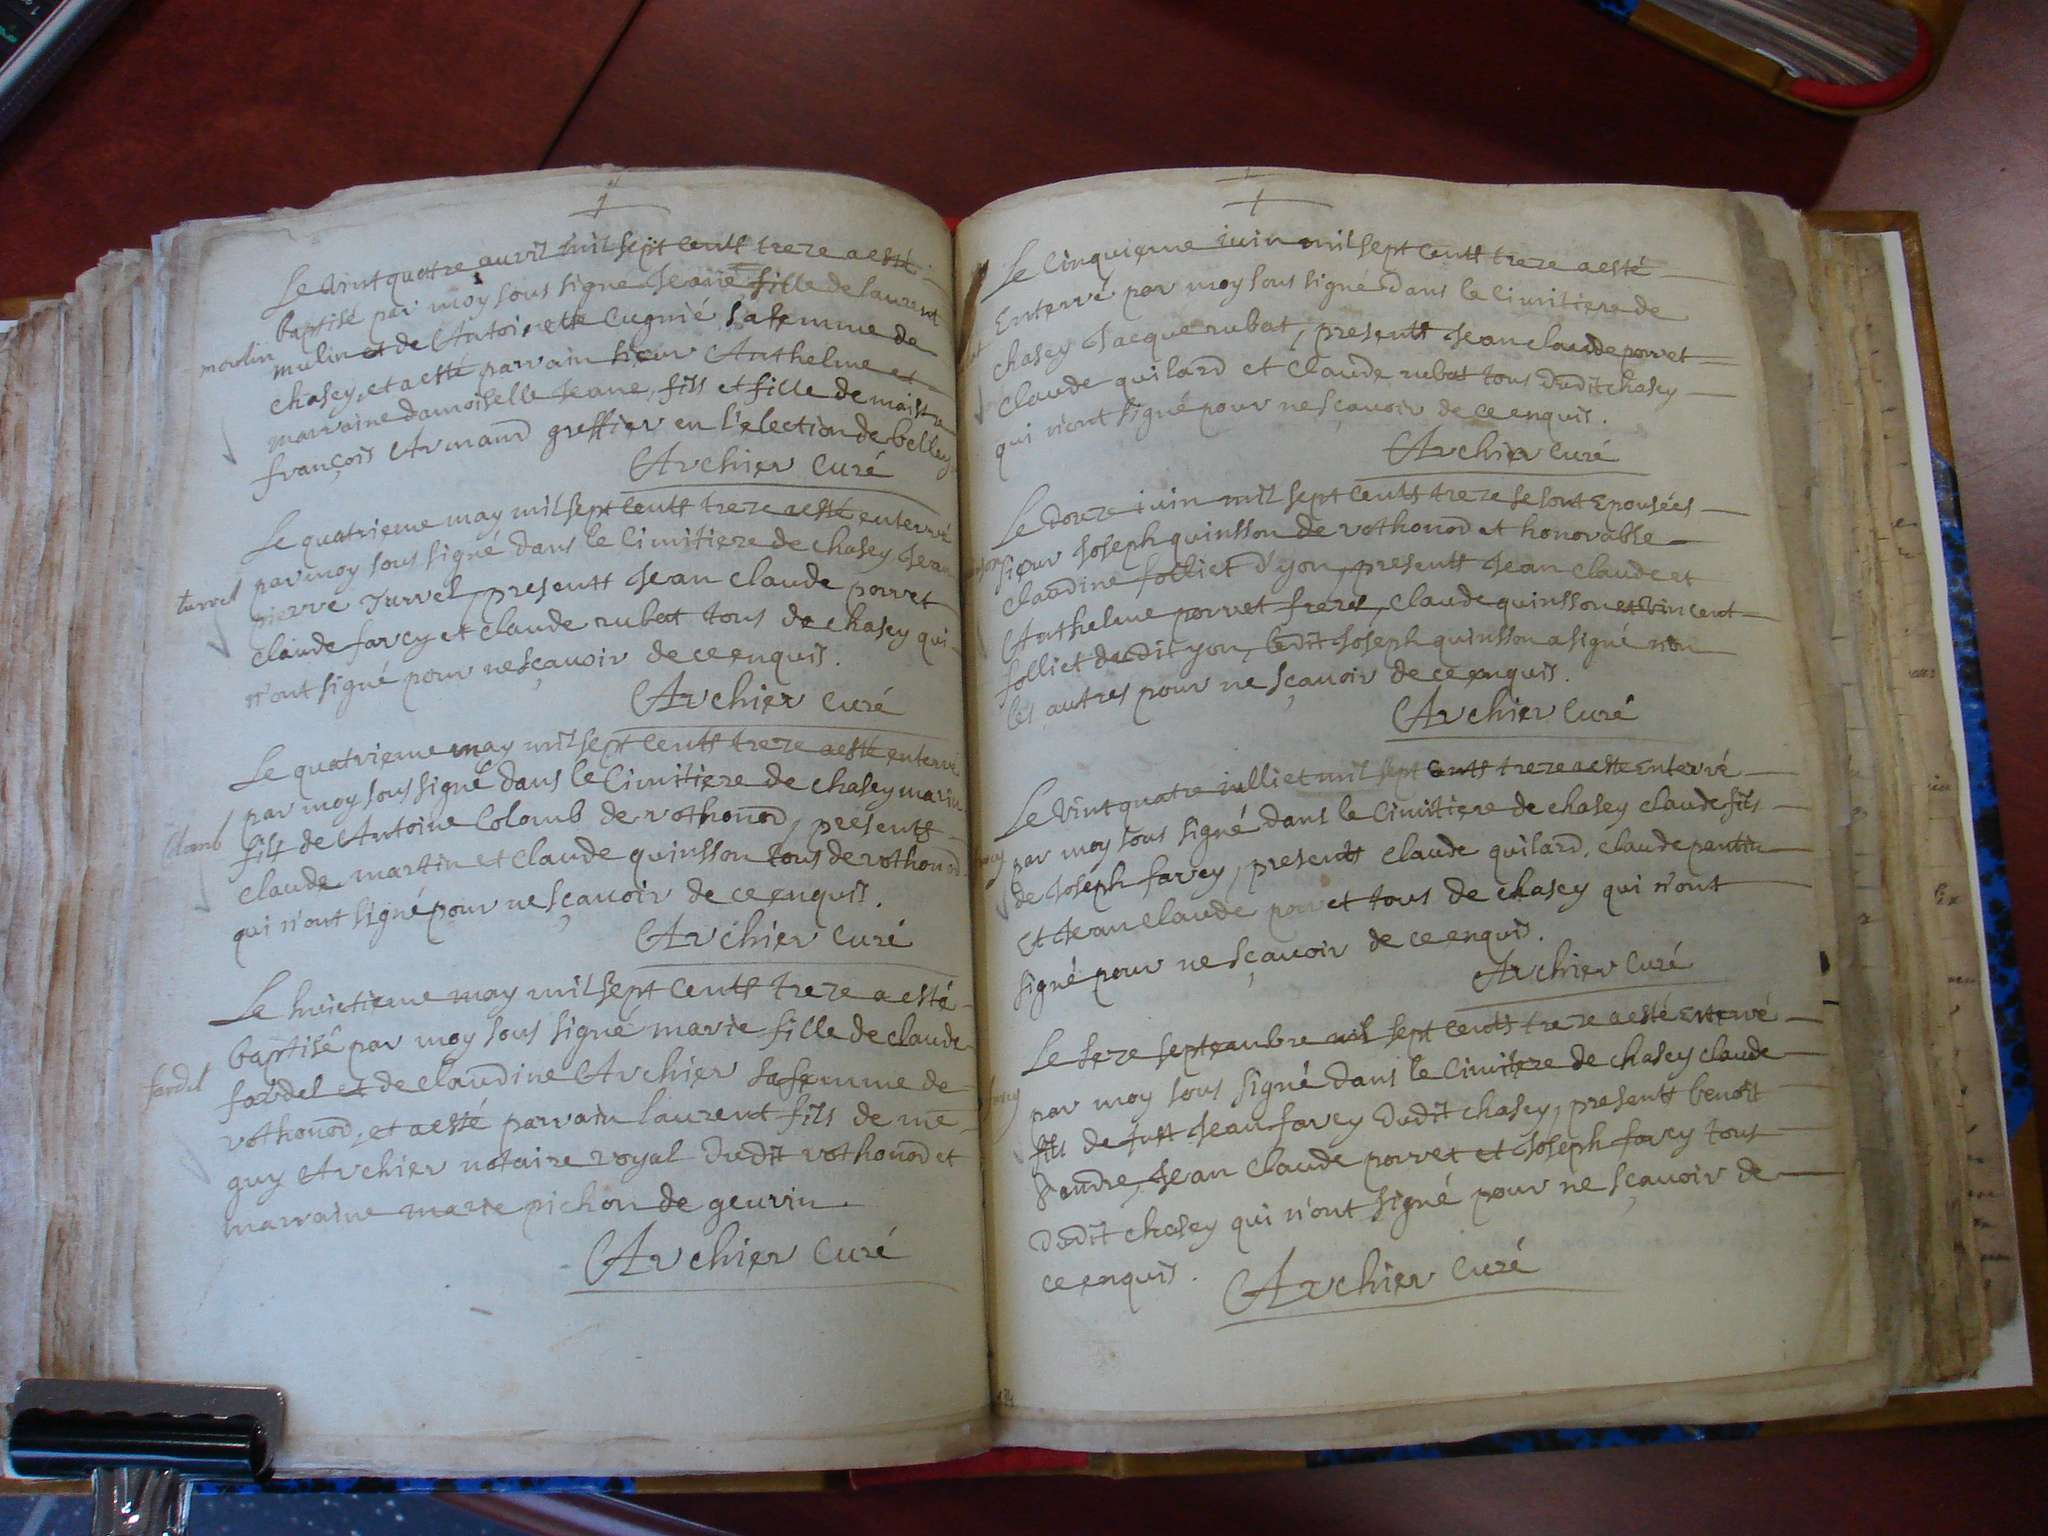 Le vint quatre avril mil sept cents treze a esté
baptisé par moy sous signé Jeane fille de laurent
moulin
mulin et de Antoinette Cugnié sa femme de
chasey, et a esté parrain sieur Anthelme et
marraine damoiselle Jeane, fils et fille de maistre
françois Armand greffier en l'election de belley
Archier Curé
Le quatrieme may mil sept cents treze a esté enterré
par moy sous signé dans le Cimitiere de chasey Jean
turvel
pierre Turvel, presents Jean Claude porret
claude farcy et claude rubat tous de chasey qui
n'ont signé pour ne sçavoir de ce enquis.
Archier Curé
Le quatrieme may mil sept cents treze a esté enterré
par moy sous signé dans le Cimitiere de chasey marin
Colomb
fils de Antoine Colomb de rothonod, presents
claude martin et Claude quinsson tous de rothonod
qui n'ont signé pour ne sçavoir de ce enquis.
Archier Curé
Le huictieme may mil sept cents treze a esté
baptisé par moy sous signé marie fille de claude
fardel
fardel et de claudine Archier sa femme de
rothonod, et a esté parrain laurent fils de me
guy Archier notaire royal dudit rothonod et
marraine marie pichon de geuvin.
Archier Curé
Le Cinquieme iuin mil sept Cents treze a esté
Enterré par moy sous signé dans le Cimitiere de
chasey Jacque rubat, presents Jean claude porret
Claude quilard et Claude rubat tous dudit chasey
qui n'ont signé pour ne sçavoir de ce enquis.
Archier Curé
Le doze iuin mil sept Cents treze se sont Epousées
sieur Joseph quinsson de rothonod et honorable
claudine folliet d'yon, presents Jean Claude et
Anthelme porret freres, Claude quinsson et vincent
folliet dudit yon, ledit Joseph quinsson a signé non
les autres pour ne sçavoir de ce enquis.
Archier Curé
Le vint quatre iulliet mil sept Cents treze a esté Enterré
par moy sous signé dans le Cimitiere de chasey claude fils
de Joseph farcy, presents claude quilard, claude pantin
Et Jean Claude porret tous de chasey qui n'ont
signé pour ne sçavoir de ce enquis.
Archier Curé
Le seze septeambre mil sept Cents treze a esté Enterré
par moy sous signé dans le Cimitiere de chasey claude
farcy
fils de Just Jean farcy dudit chasey, presents benoît
Jean Claude porret et Joseph farcy tous
dudit chasey qui n'ont signé pour ne sçavoir de
ce enquis.
Archier Curé